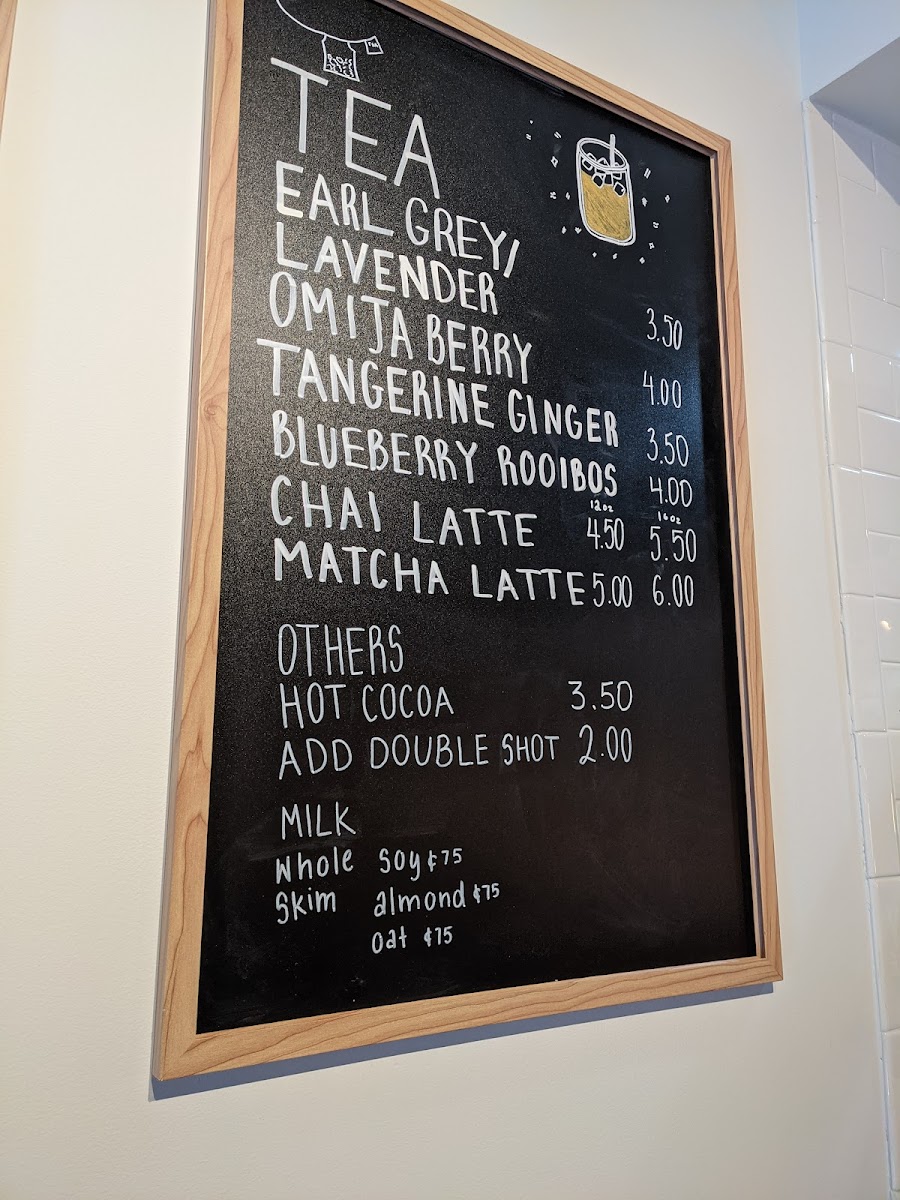 TEA
EARL GREY/
LAVENDER 3.50
OMIJA BERRY 4.00
TANGERINE GINGER 3.50
BLUEBERRY ROOIBOS 4.00
12oz 16oz
CHAI LATTE 4.50 5.50
MATCHA LATTE 5.00 6.00
OTHERS
HOT COCOA 3.50
ADD DOUBLE SHOT 2.00
MILK
Whole soy ¢75
skim almond ¢75
oat ¢75